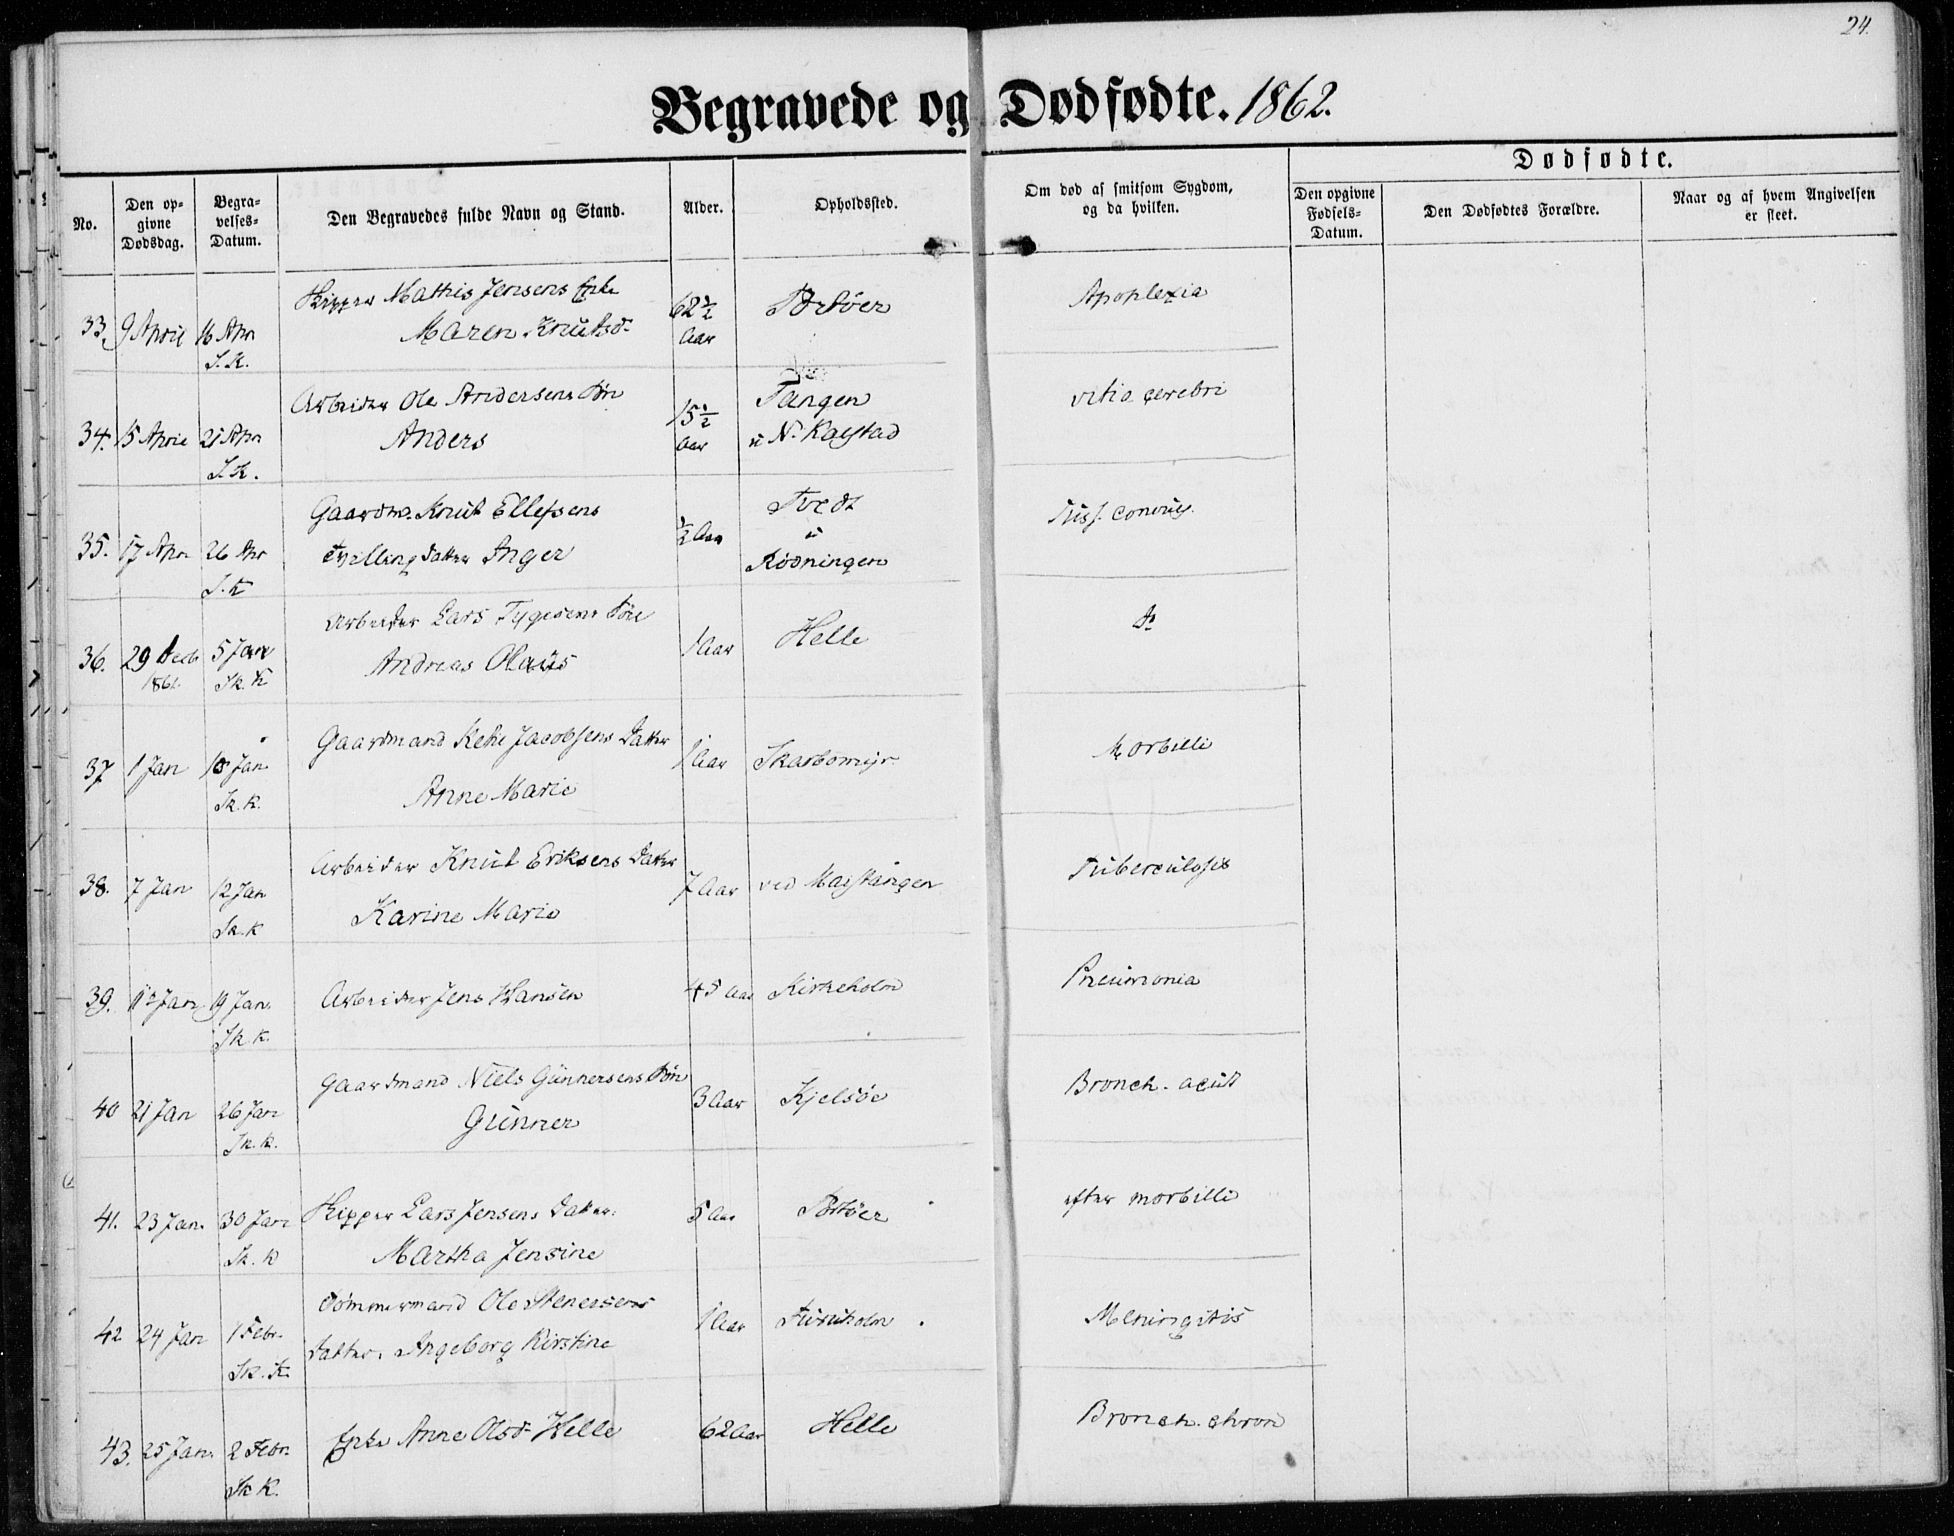 24.
Begravede og Dødfødte. 1862.
No.
Den opgivne Dødsdag.
Begravelses-Datum.
Den Begravedes fulde Navn og Stand.
Alder.
Opholdssted.
Om død af smitsom Sygdom, og da hvilken.
Dødfødte.
Den opgivne Fødsels-Datum.
Den Dødfødtes Forældre.
Naar og af hvem Angivelsen er skeet.
33. 9 April 16 Apr Skipper Mathis Jensens Enke 62½ Portøer Apoplexia
S.K. Maren Knutsd. Aar
34. 15 April 21 Apr Arbeider Ole Andersens Søn 15½ Tangen vitio cerebri
S.K. Anders Aar u N. Kalstad
35. 17 Apr 26 Apr Gaardm. Knut Ellefsens ½ Aar Tvedt Tuss. convuls.
S.K Tvillingdatter Inger u Rødningen
36. 29 Decb 5 Janr Arbeider Lars Tygesens Søn 1 Aar Helle do
1861. Sk. K Andreas Olaüs
37 1 Jan 10 Jan Gaardmand Jacobsens Datter 1 Aar Morbilli
Sk. K. Anne Marie
38. 7 Jan 12 Jan Arbeider Knut Eriksens Datter 7 Aar ved Tuberculosis
Sk. K Karine Marie
39. 12 Jan 19 Jan Arbeider Jens Hansen 45 Aar Kirkeholm Pneumonia
Sk K.
40 21 Jan 26 Jan Gaardmand Niels Gunnersens Søn 3 Aar Kjelsøe Bronch. acut
Sk. K. Gunner
41. 23 Jan. 30 Jan Skipper Lars Jensens Datter 5 Aar Portøer efter morbilli
Sk. K Martha Jensine
42 24 Jan 1 Febr. Tømmermand Ole Stenersens 1 Aar Furuholm Meningitis
Sk. K. Datter, Ingeborg Kirstine
43. 25 Jan. 2 Febr. Enke Anne Olsd. Helle 62 Aar Helle Bronch. chron
Sk K.